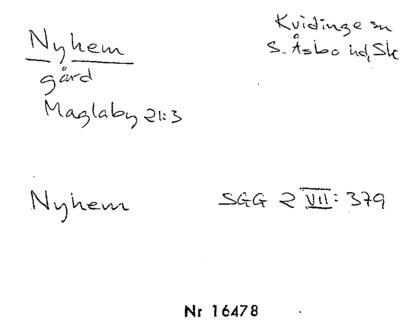 Nyhem
gård
Maglaby 21:3
Kvidinge sn
S. Åsbo hd, Sk
Nyhem
SGG 2 VII: 379
Nr 16478